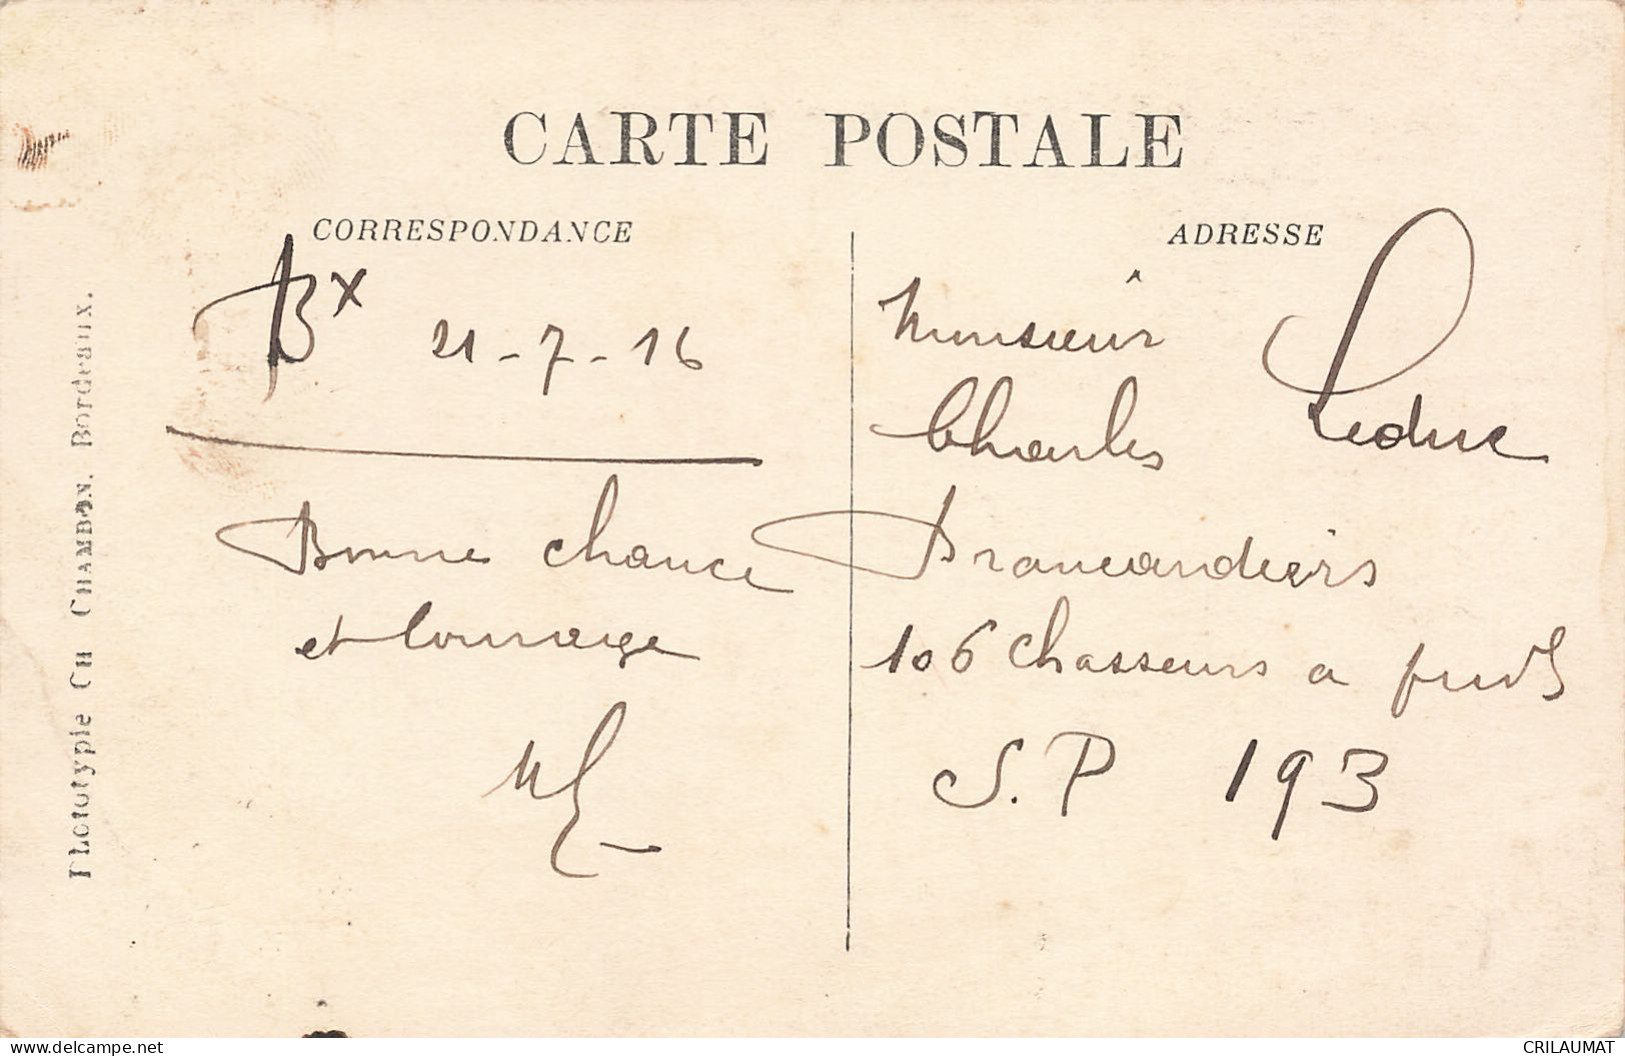 CARTE POSTALE
CORRESPONDANCE
Bx 21-7-16
Bonne chance
et courage
ADRESSE
Monsieur
Charles Leduc
Brancardiers
106 Chasseurs a pieds
S.P 193
Phototypie CH CHAMBON. Bordeaux.
www.delcampe.net
CRILAUMAT